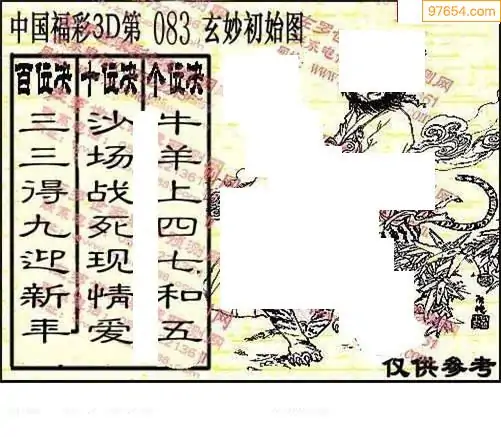 97654.com
中国福彩3D第 083 玄妙初始图
百位决 十位决 个位决
三三得九迎新年
沙场战死现情爱
牛羊上四七和五
仅供参考